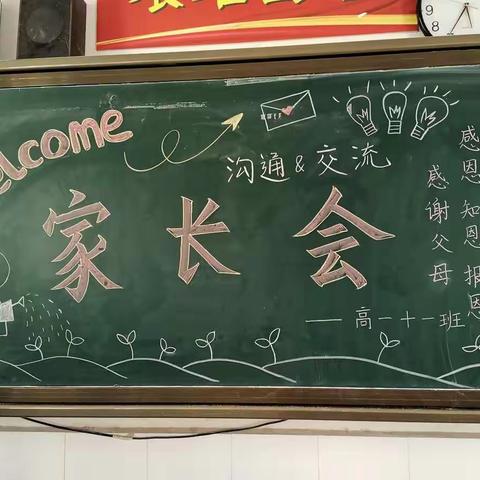 Welcome
沟通&交流
家长会
——高一十一班
感谢父母
感恩知恩报恩
9
8
7
6